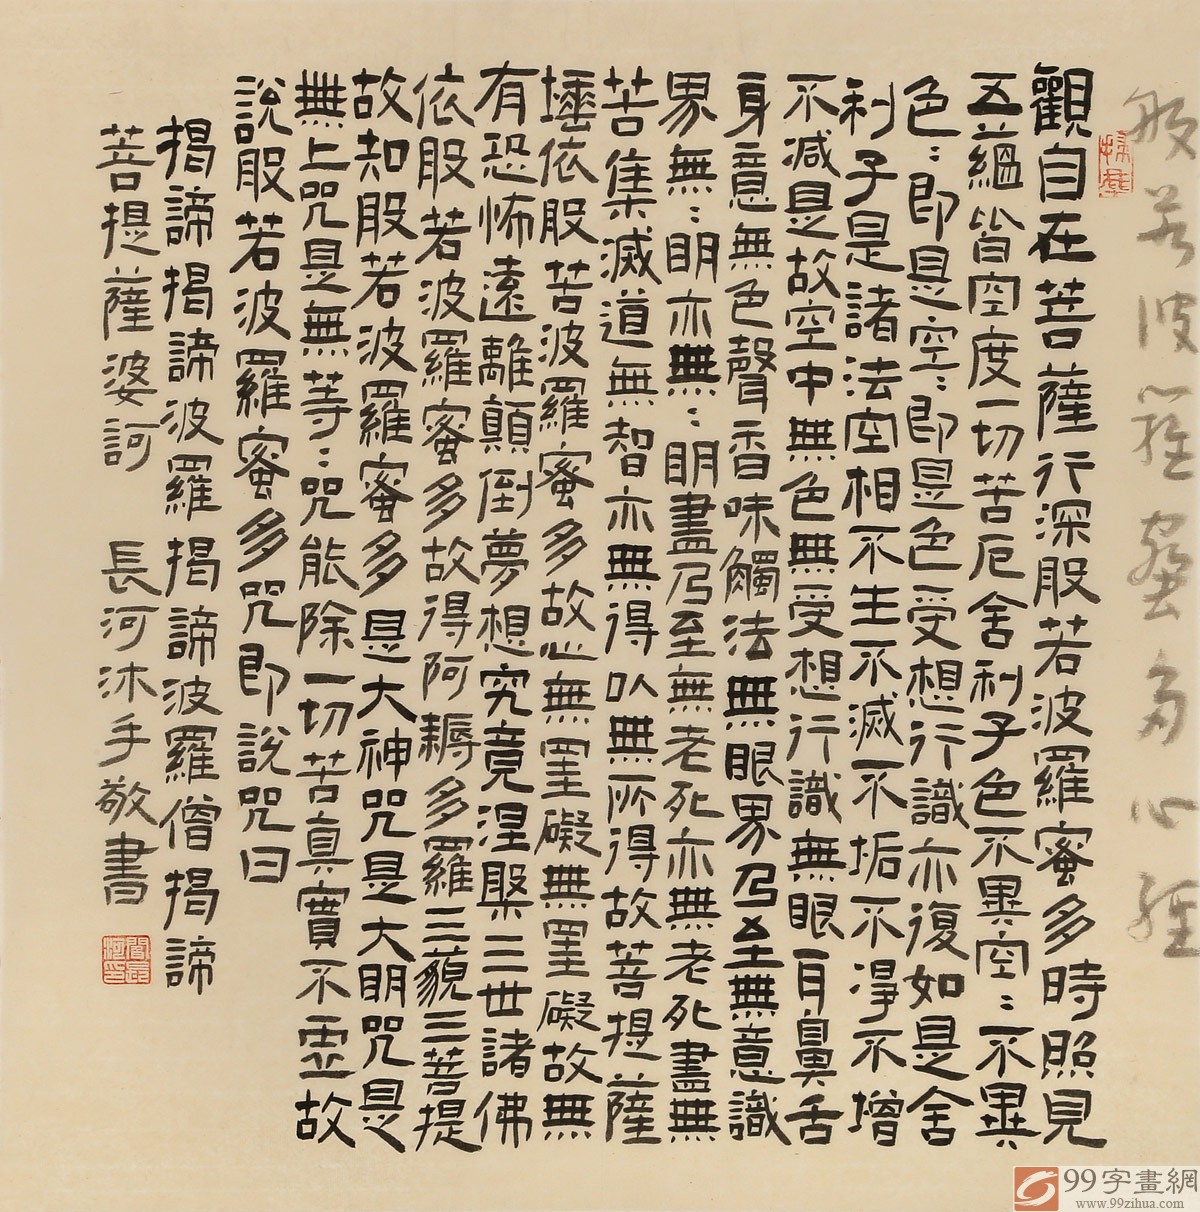 般若波羅蜜多心經
觀自在菩薩行深般若波羅蜜多時照見
五蘊皆空度一切苦厄舍利子色不異空:不異
色:即是空:即是色受想行識亦復如是舍
利子是諸法空相不生不滅不垢不淨不增
不減是故空中無色無受想行識無眼耳鼻舌
身意無色聲香味觸法無眼界乃至無意識
界無:明亦無:明盡乃至無老死亦無老死盡無
苦集滅道無智亦無得以無所得故菩提薩
埵依般若波羅蜜多故心無罣礙無罣礙故無
有恐怖遠離顛倒夢想究竟涅槃三世諸佛
依般若波羅蜜多故得阿耨多羅三藐三菩提
故知般若波羅蜜多是大神咒是大明咒是
無上咒是無等:咒能除一切苦真實不虛故
說般若波羅蜜多咒即說咒曰
揭諦揭諦波羅揭諦波羅僧揭諦
菩提薩婆訶 長河沐手敬書
99字畫網
www.99zihua.com